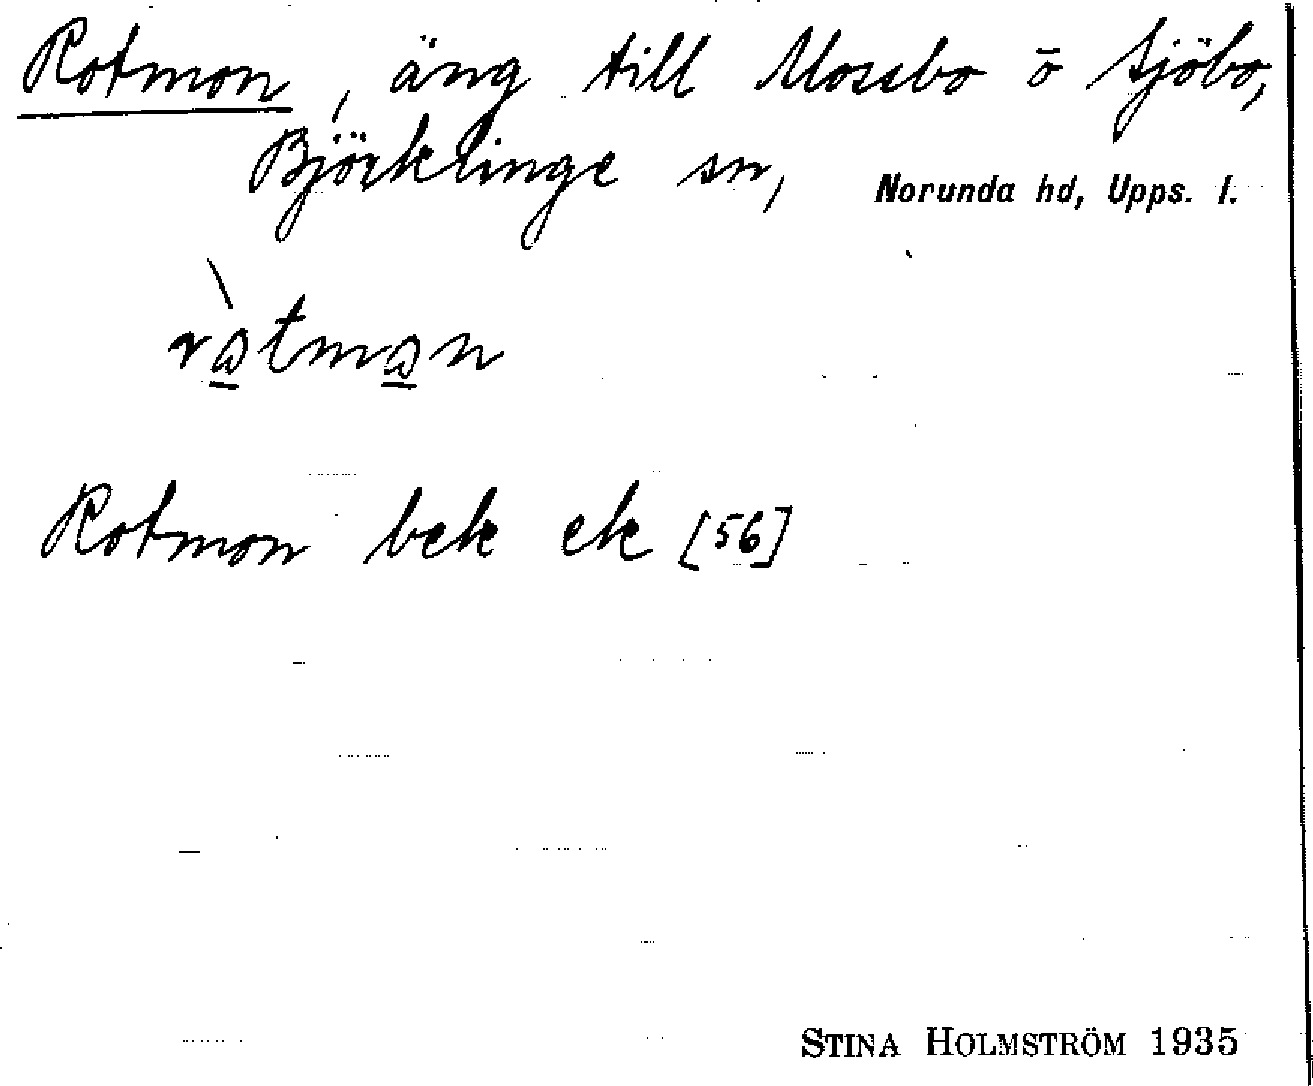 Rotmon, äng till Mossbo o Sjöbo,
Björklinge sn, Norunda hd, Upps. l.
ròtmon
Rotmon bek ek [56]
STINA HOLMSTRÖM 1935